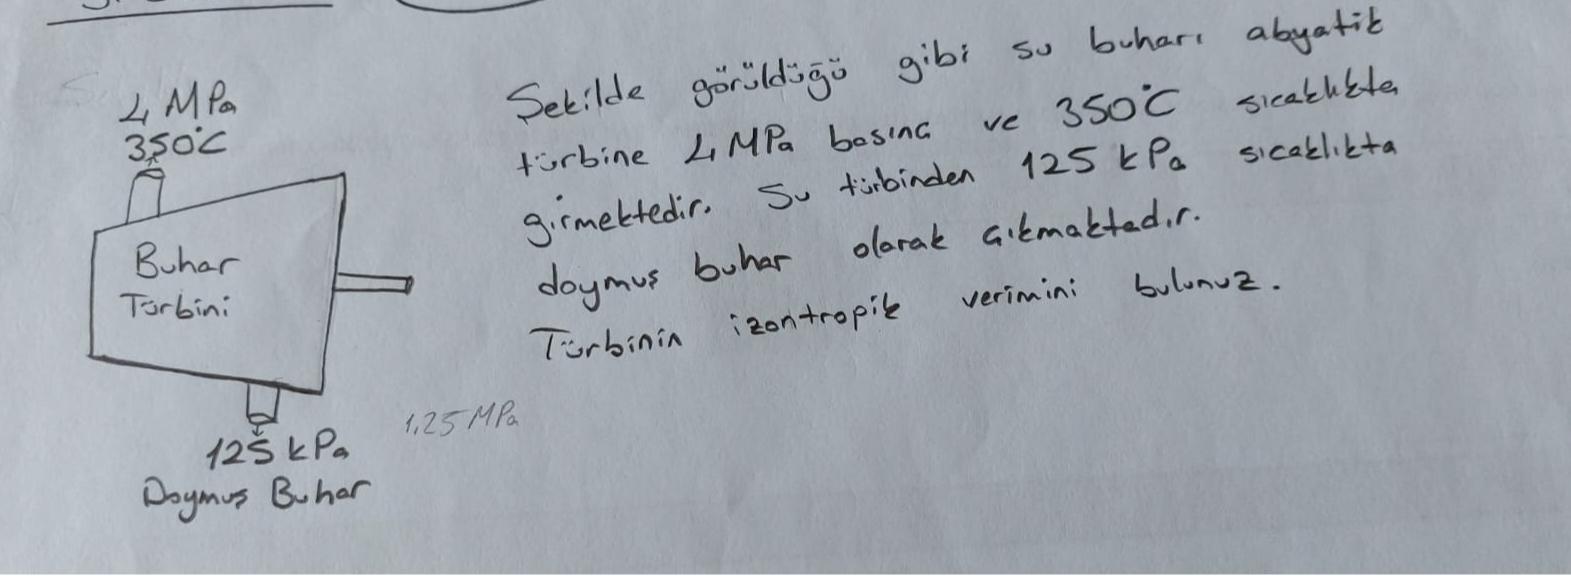 4 MPa
350°C
Buhar
Türbini
125 kPa
Doymuş Buhar
1,25 MPa
Şekilde görüldüğü gibi su buharı abyatik
türbine 4 MPa basınç ve 350°C sıcaklıkta
girmektedir. Su türbinden 125 kPa sıcaklıkta
doymuş buhar olarak çıkmaktadır.
Türbinin izontropik verimini bulunuz.